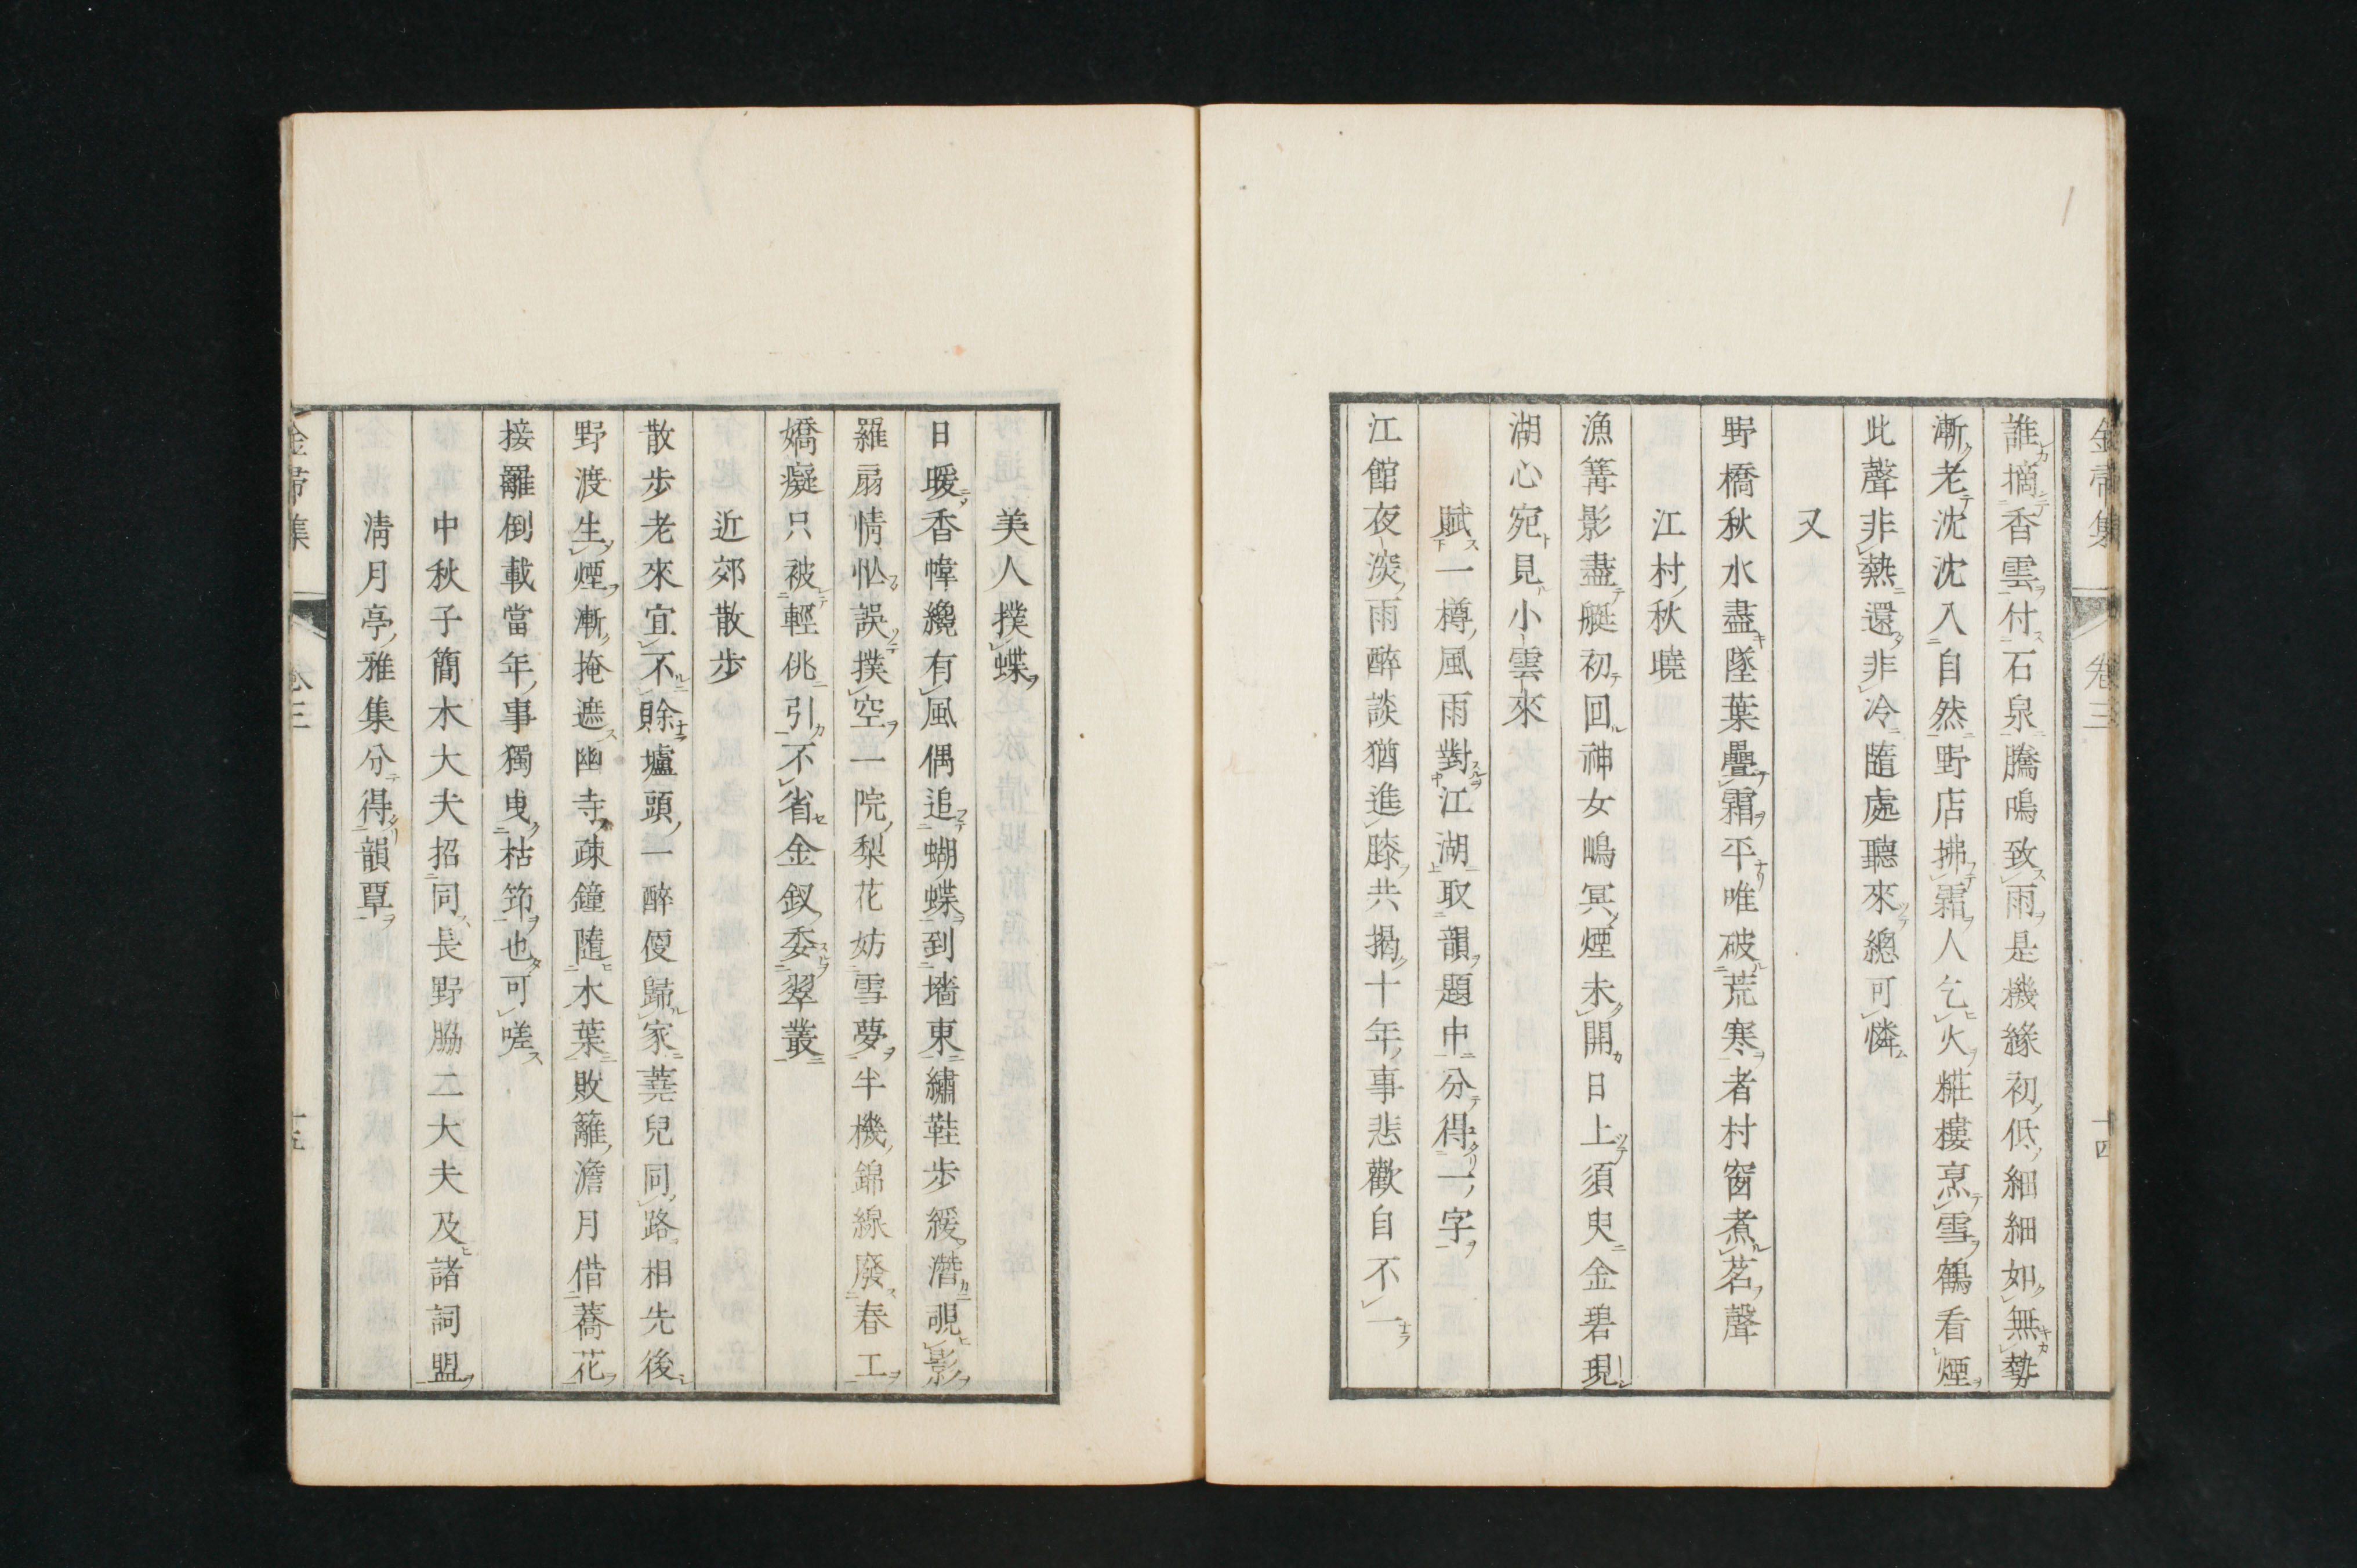 金帚集 卷三 十四
誰摘香雲付石泉騰鳴致雨是機緣初低細細如無勢
漸老沈沈入自然野店拂霜人乞火粧樓烹雪鶴看煙
此聲非熱還非冷隨處聽來總可憐
又
野橋秋水盡墜葉疊霜平唯破荒寒者村窗煮茗聲
江村秋曉
漁篝影盡艇初回神女嶋冥煙未開日上須臾金碧現
湖心宛見小雲來
賦一樽風雨對江湖取韻題中分得一字
江館夜深雨醉談猶進膝共揭十年事悲歡自不一
美人撲蝶
日暖香幃纔有風偶追蝴蝶到墻東繡鞋步緩潛覗影
羅扇情忙誤撲空一院梨花妨雪夢半機錦線廢春工
嬌癡只被輕佻引不省金釵委翠叢
近郊散步
散步老來宜不賖壚頭一醉便歸家蕘兒同路相先後
野渡生煙漸掩遮幽寺疎鐘隨木葉敗籬澹月借蕎花
接䍦倒載當年事獨曳枯筇也可嗟
中秋子簡木大夫招同長野脇二大夫及諸詞盟
淸月亭雅集分得韻覃
金帚集 卷三 十五